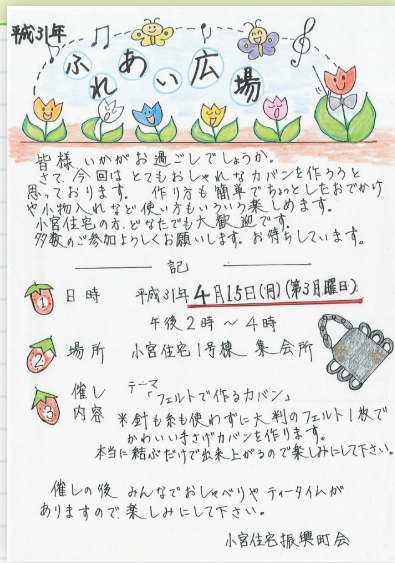 平成31年
ふれあい広場
皆様、いかがお過ごしでしょうか。
さて、今回はとてもおしゃれなカバンを作ろうと
思っております。作り方も簡単でちょっとしたおでかけ
や小物入れなど使い方もいろいろ楽しめます。
小宮住宅の方、どなたでも大歓迎です。
多数のご参加よろしくお願いします。お待ちしています。
記
1 日時 平成31年4月15日(月)(第3月曜日)
午後2時〜4時
2 場所 小宮住宅1号棟 集会所
3 催し内容 テーマ「フェルトで作るカバン」
※針も糸も使わずに大判のフェルト1枚で
かわいい手さげカバンを作ります。
本当に結ぶだけで出来上がるので楽しみにして下さい。
催しの後 みんなでおしゃべりやティータイムが
ありますので、楽しみにして下さい。
小宮住宅振興町会